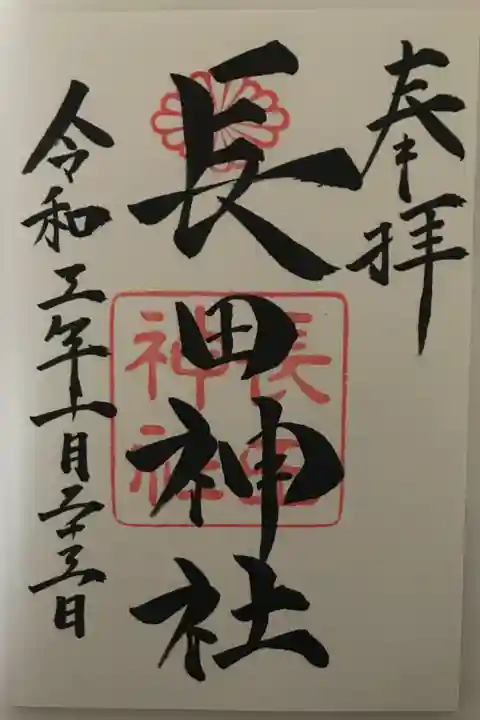 奉拝
長田神社
長田
神社
令和年十一月二十三日